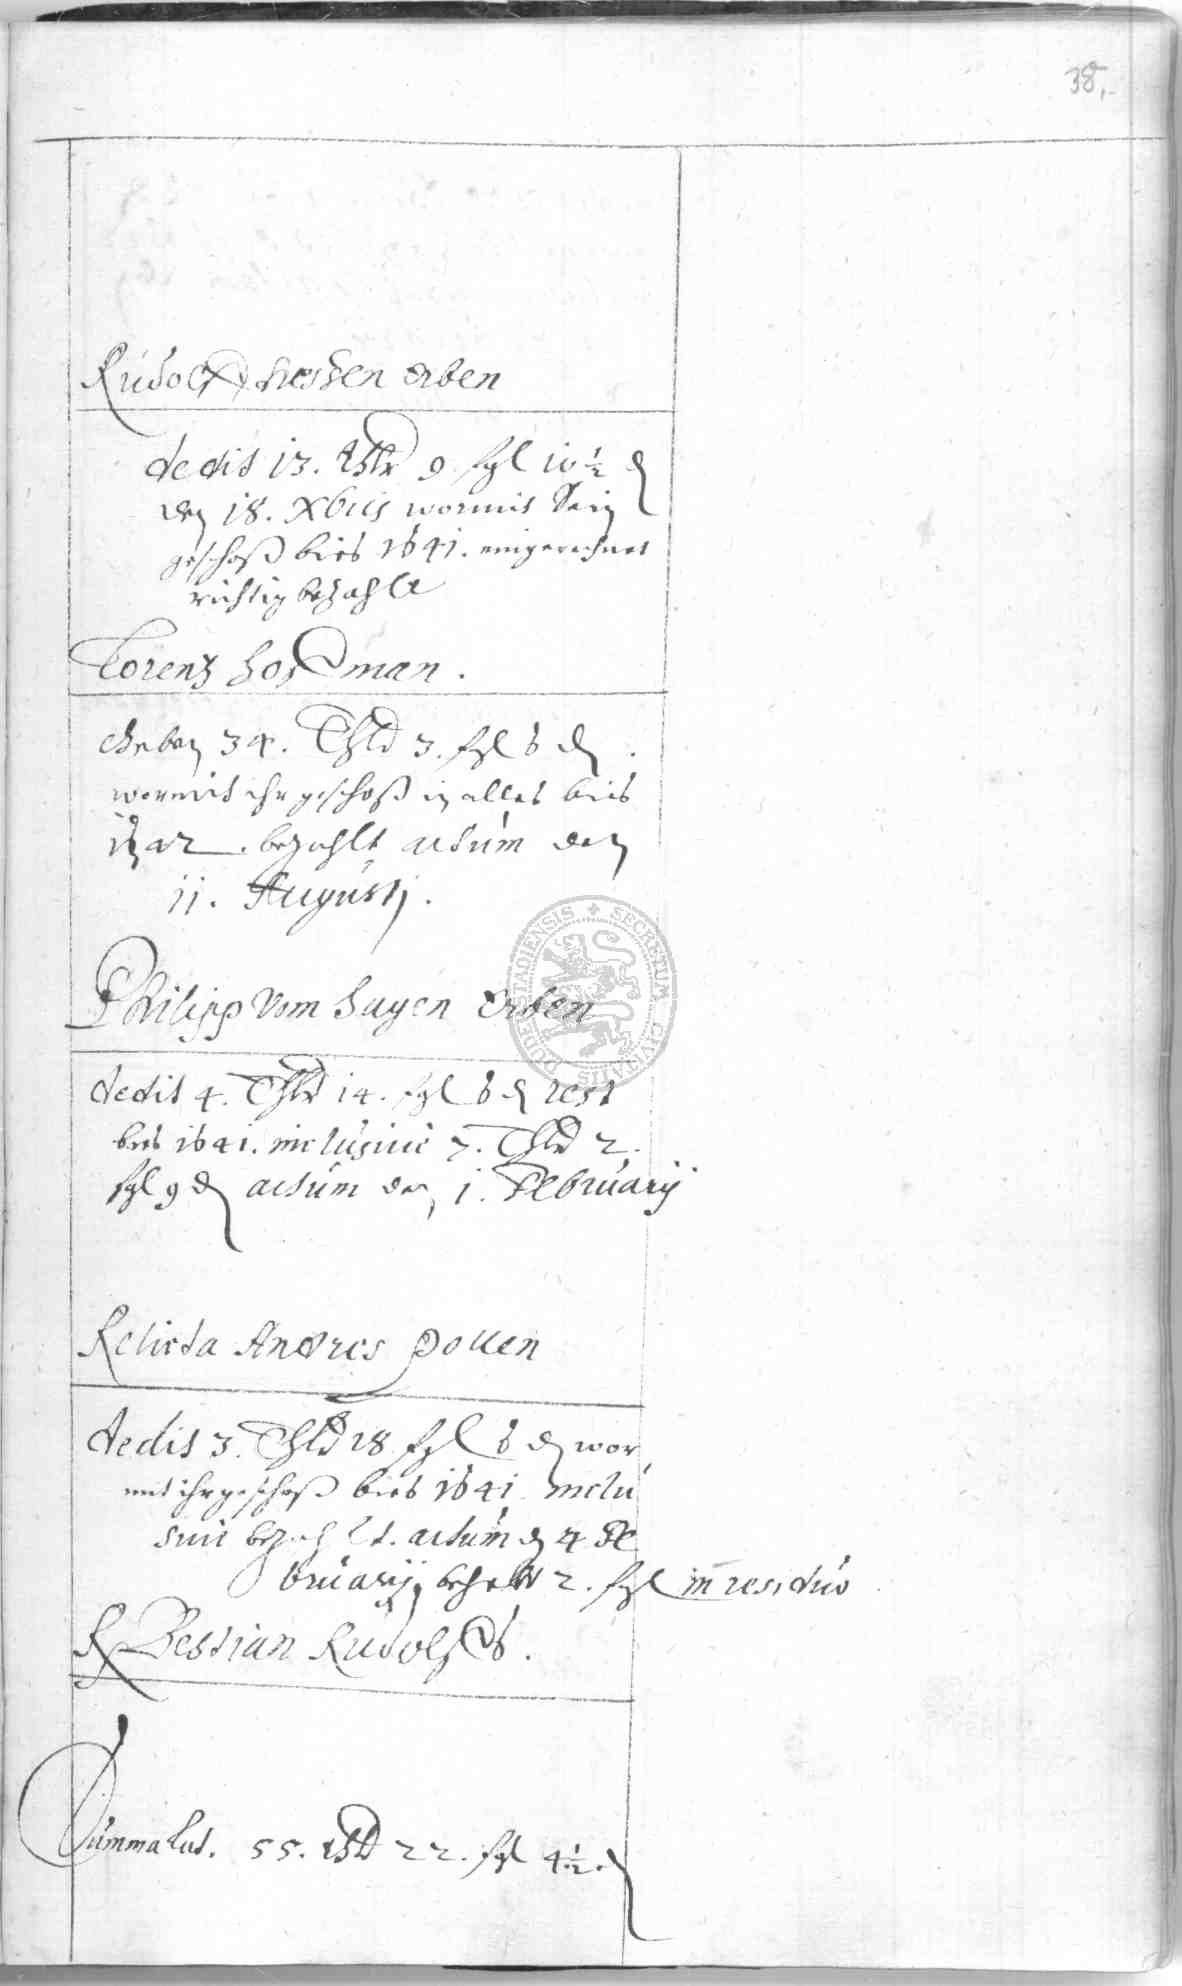 38.
Rudolff Hessen Erben
dedit 13. Thlr 9 ſgl 10 ½ ₰
den 18. Xbris wormit Sein
geschoß bies 1641. eingerechnet
richtig bezahlt
Lorentz Hoffman.
Geben 34. Thlr 3. ſgl 6 ₰.
wormit ihr geschoß in alles bies
1642. bezahlt actum den
11. Augusti.
Philipp Vom Hagen Erben
dedit 4. Thlr 14. ſgl 6 ₰ rest
bies 1641. inclusiue 7. Thlr 2.
ſgl 9 ₰ actum den 1. February
Relicta Andres Pollen
dedit 3. Thlr 18 ſgl 6 ₰ wor
mit ihr geschoß bies 1641 inclu
siue bezahlt. actum ₰ 4 Fe
bruarij behelt 2. ſgl in residuo
R Bestian Rudolffs.
Summa Lat. 55. Thlr 22. ſgl 4 ½ ₰
SECRETUM CIVITATIS DUDERSTADIENSIS